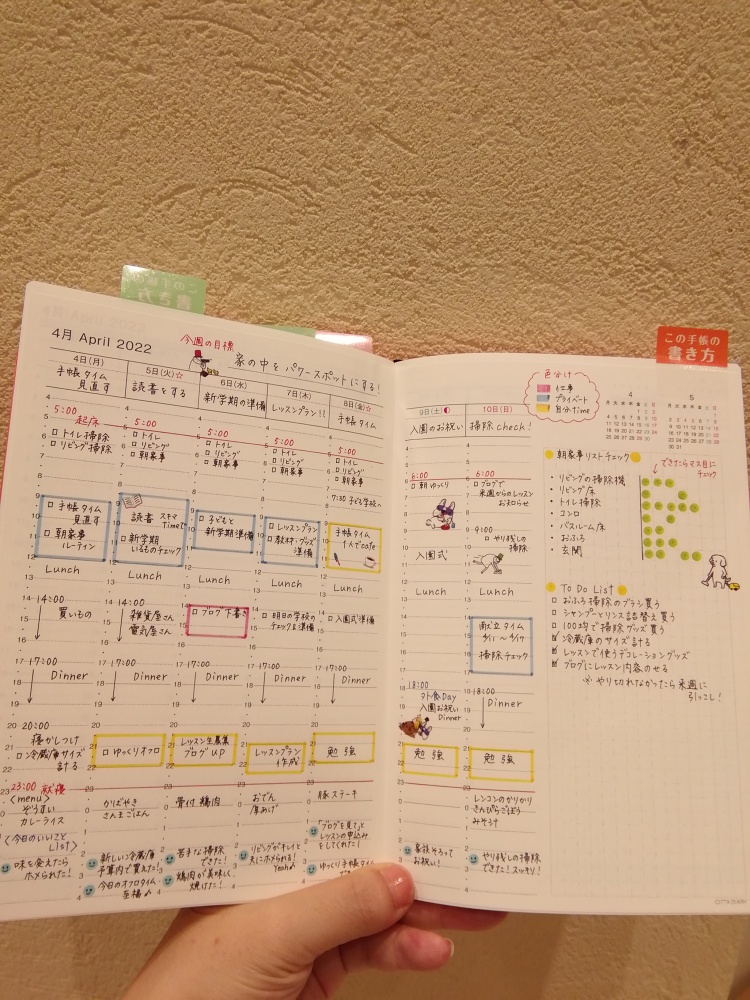 この手帳の
書き方
4月 April 2022
今週の目標
家の中をパワースポットにする!
この手帳の
書き方
4日(月)
手帳タイム
見直す
4
5:00
起床
□トイレ掃除
□リビング掃除
□手帳タイム
見直す
□朝家事
ルーティン
Lunch
14:00
買いもの
17:00
Dinner
20:00
寝かしつけ
□冷蔵庫サイズ
計る
23:00 就寝
<menu>
カレーライス
<今日のいいこと
List>
味を変えたら
ホメられた!
5日(火)☆
読書をする
5:00
□トイレ
□リビング
□朝家事
読書 スキマ
Time!
□新学期
いるものチェック
Lunch
14:00
雑貨屋さん
電気屋さん
17:00
Dinner
□ゆっくりオフロ
かばやき
さんまごはん
新しい冷蔵庫
予算内で買えた!
今日のオフロタイム
至福♪
6日(水)
新学期の準備
5:00
□トイレ
□リビング
□朝家事
□子どもと
新学期準備
Lunch
□ブログ下書き
17:00
Dinner
レッスン生募集
ブログUP
骨付鶏肉
苦手な掃除
できた!
鶏肉が美味しく
焼けた!
7日(木)
レッスンプラン!!
5:00
□トイレ
□リビング
□朝家事
□レッスンプラン
□教材・グッズ
準備
Lunch
□明日の学校の
チェック&準備
17:00
Dinner
レッスンプラン
作成
おでん
厚あげ
リビングがキレイと
夫にホメられる!
Yeah♪
8日(金)☆
手帳タイム
5:00
□トイレ
□リビング
□朝家事
7:30 子ども学校へ
手帳タイム
1人でcafe
Lunch
□入園式準備
17:00
Dinner
勉強
豚ステーキ
「ブログを見て」と
レッスンの申込みを
してくれた!
ゆっくり手帳タイム
9日(土)
入園のお祝い
6:00
□朝ゆっくり
入園式
Lunch
18:00
外食Day
入園お祝い
Dinner
勉強
家族そろって
お祝い!
10日(日)
掃除check!
6:00
□ブログで
来週からのレッスン
お知らせ
9:00
□やり残しの
掃除
Lunch
献立タイム
掃除チェック
18:00
Dinner
勉強
レンコンのかりかり
きんぴらごぼう
みそ汁
やり残しの掃除
できた!スッキリ!
色分け
仕事
プライベート
自分time
4
月 火 水 木 金 土 日
1 2 3
4 5 6 7 8 9 10
11 12 13 14 15 16 17
18 19 20 21 22 23 24
25 26 27 28 29 30
5
月 火 水 木 金 土 日
1
2 3 4 5 6 7 8
9 10 11 12 13 14 15
16 17 18 19 20 21 22
23 24 25 26 27 28 29
30 31
朝家事リストチェック
できたらマス目に
チェック
・リビングの掃除機
・リビング床
・トイレ掃除
・コンロ
・バスルーム床
・おふろ
・玄関
To Do List
□おふろ掃除のブラシ買う
□シャンプーリンス詰め替え買う
□100均で掃除グッズ買う
冷蔵庫のサイズ計る
レッスンで使うデコレーショングッズ
ブログにレッスン内容のせる
※やり切れなかったら来週に
引っこし!